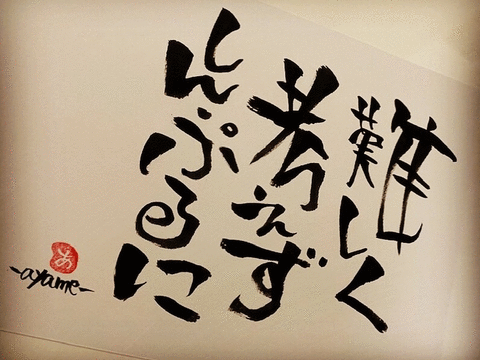 難しく
考えず
しんぷるに
あ
-ayame-